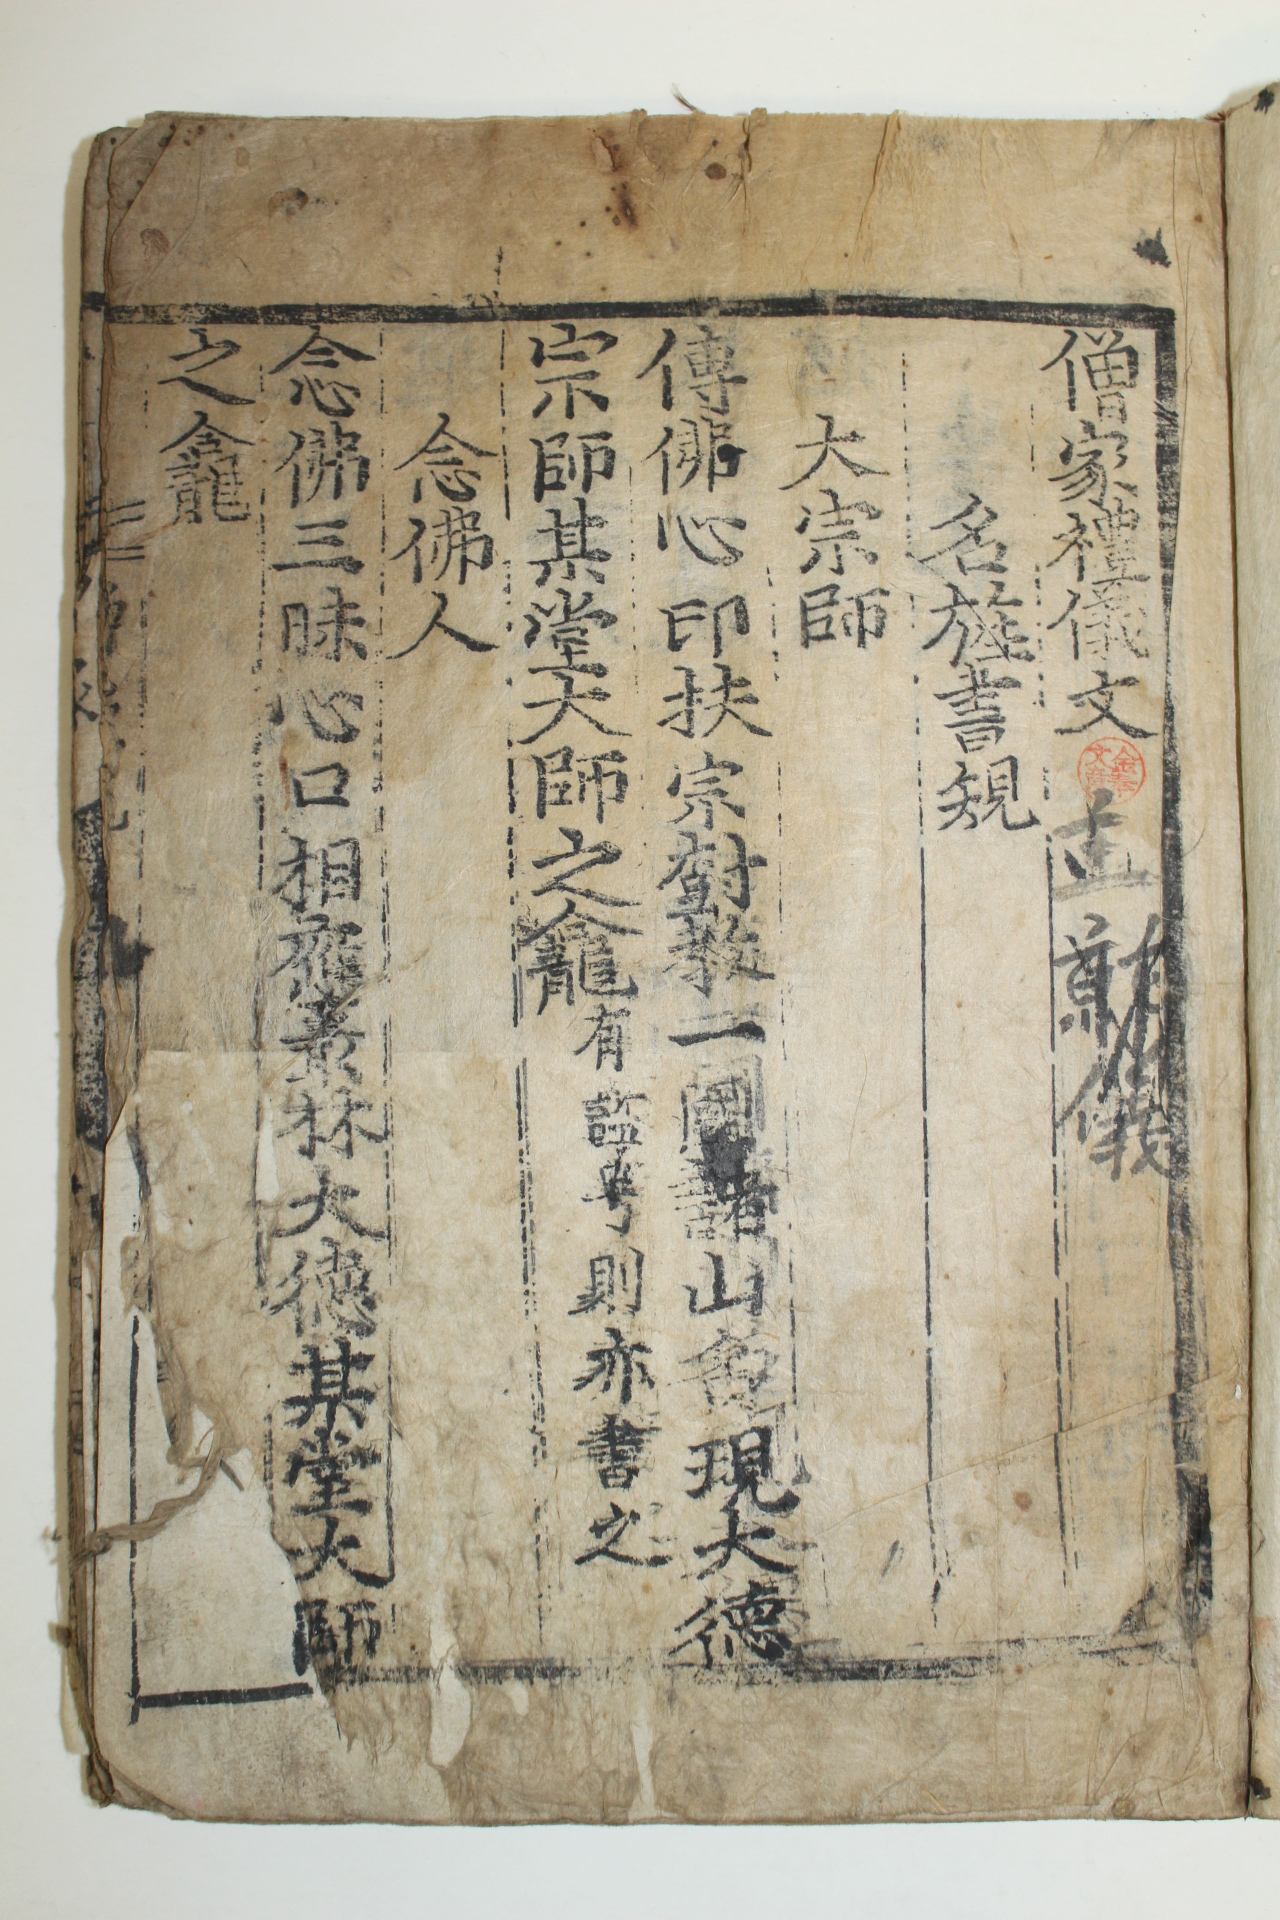 僧家禮儀文
名旌書規
大宗師
傳佛心印扶宗對教一國諸山會現大德
宗師某堂大師之龕有諡号則亦書之
念佛人
念佛三昧心口相應叢林大德某堂大師
之龕